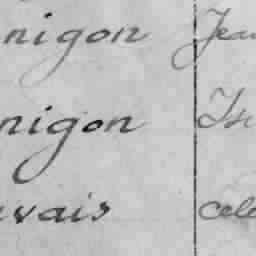 nigon Jean
nigon Isi
vais cele